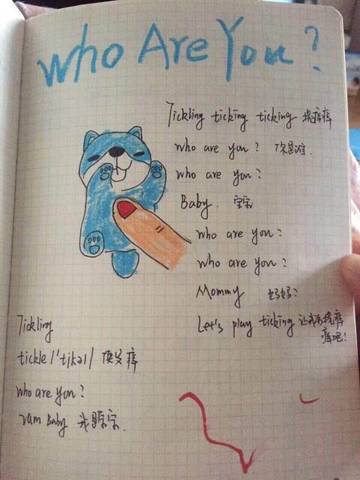 Who Are You?
Tickling ticking ticking 挠痒痒
who are you? 你是谁.
who are you?
Baby. 宝宝
who are you?
who are you?
Mommy 妈妈?
Let's play ticking 让我们挠痒
痒吧!
Tickling
tickle /'tikəl/ 使发痒
who are you?
I am Baby 我是宝宝.